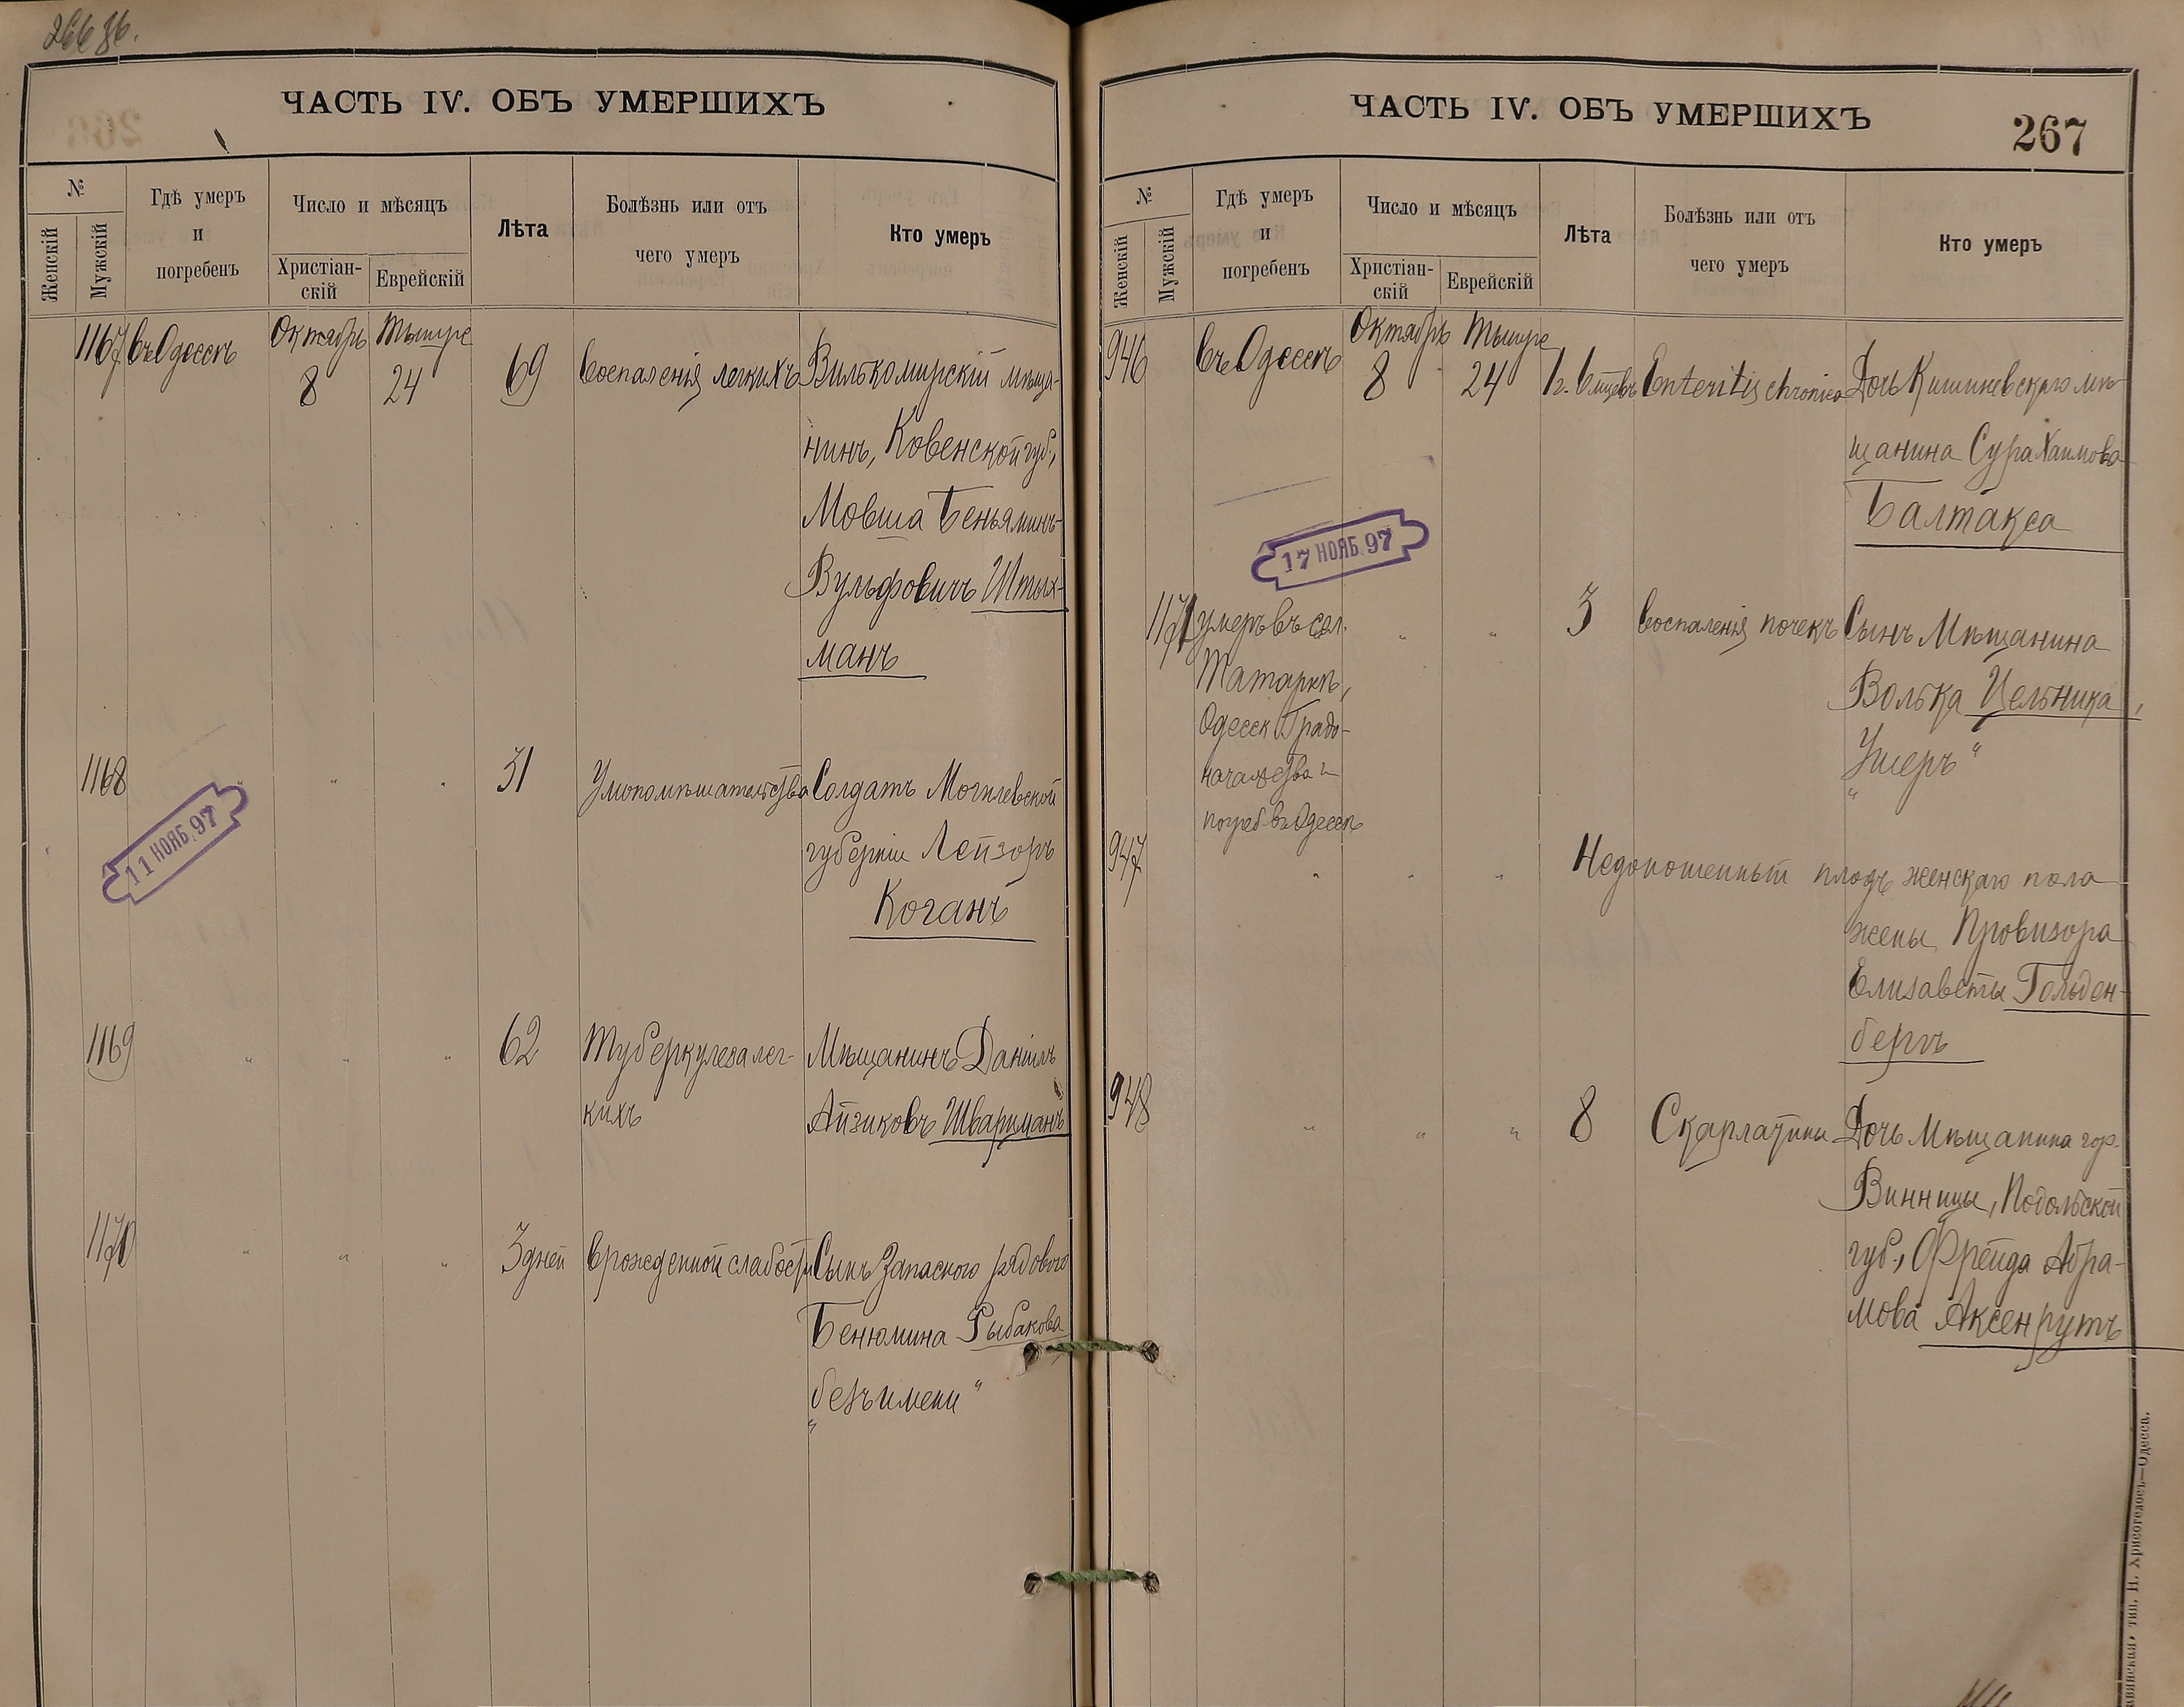 26686.
ЧАСТЬ IV. ОБЪ УМЕРШИХЪ
№
Женскій
Мужскій
Гдѣ умеръ
и
погребенъ
Число и мѣсяцъ
Христіан-
скій
Еврейскій
Лѣта
Болѣзнь или отъ
чего умеръ
Кто умеръ
1167 въ Одессѣ Октябрь 8 Тышре 24 69 воспаленія легкихъ Вилькомирскій мѣща-
нинъ, Ковенской губ.,
Мовша Беньяминъ-
Вульфовичъ Штых-
манъ
1168 " " " 31 Умопомѣшательства Солдатъ Могилевской
губерніи Лейзоръ
Коганъ
11 НОЯБ. 97
1169 " " " 62 Туберкулеза лег- Мѣщанинъ Даніилъ
кихъ Айзиковъ Шварцманъ
1170 " " " 3 дней врожденной слабости Сынъ Запасного рядового
Бенюмина Рыбакова
„безъ имени“
ЧАСТЬ IV. ОБЪ УМЕРШИХЪ
267
№
Женскій
Мужскій
Гдѣ умеръ
и
погребенъ
Число и мѣсяцъ
Христіан-
скій
Еврейскій
Лѣта
Болѣзнь или отъ
чего умеръ
Кто умеръ
946 въ Одессѣ Октябрь 8 Тышре 24 1 г. 6 мцевъ Enteritis chronica Дочь Кишиневскаго мѣ-
щанина Сура Хаимова
Балтакса
17 НОЯБ. 97
1171 умеръ въ сел. " " 3 воспаленія почекъ Сынъ Мѣщанина
Татаркѣ, Волька Цельника,
Одесск. Градо- „Ушеръ“
начальства и
погреб. въ Одессѣ
947 " " " Недоношенный плодъ женскаго пола
жены Провизора
Елизаветы Гольден-
бергъ
948 " " " 8 Скарлатины Дочь Мѣщанина гор.
Винницы, Подольской
губ., Фрейда Абра-
мова Аксенрутъ
тип. Н. Хрисогелосъ—Одесса.